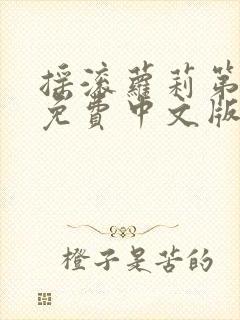 摇滚蘿莉第
免費中文版
橙子是苦的